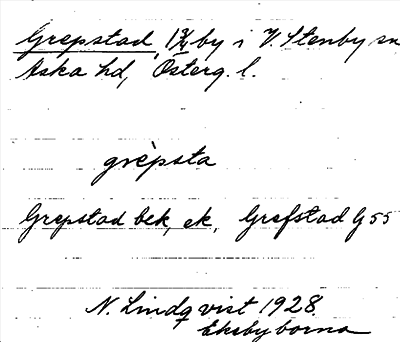 Grepstad, 1 3/4 by i V. Stenby sn
Aska hd, Österg. l.
grèpsta
Grepstad bek, ek, Grefstad G 55
N. Lindqvist 1928
Eksbyborna